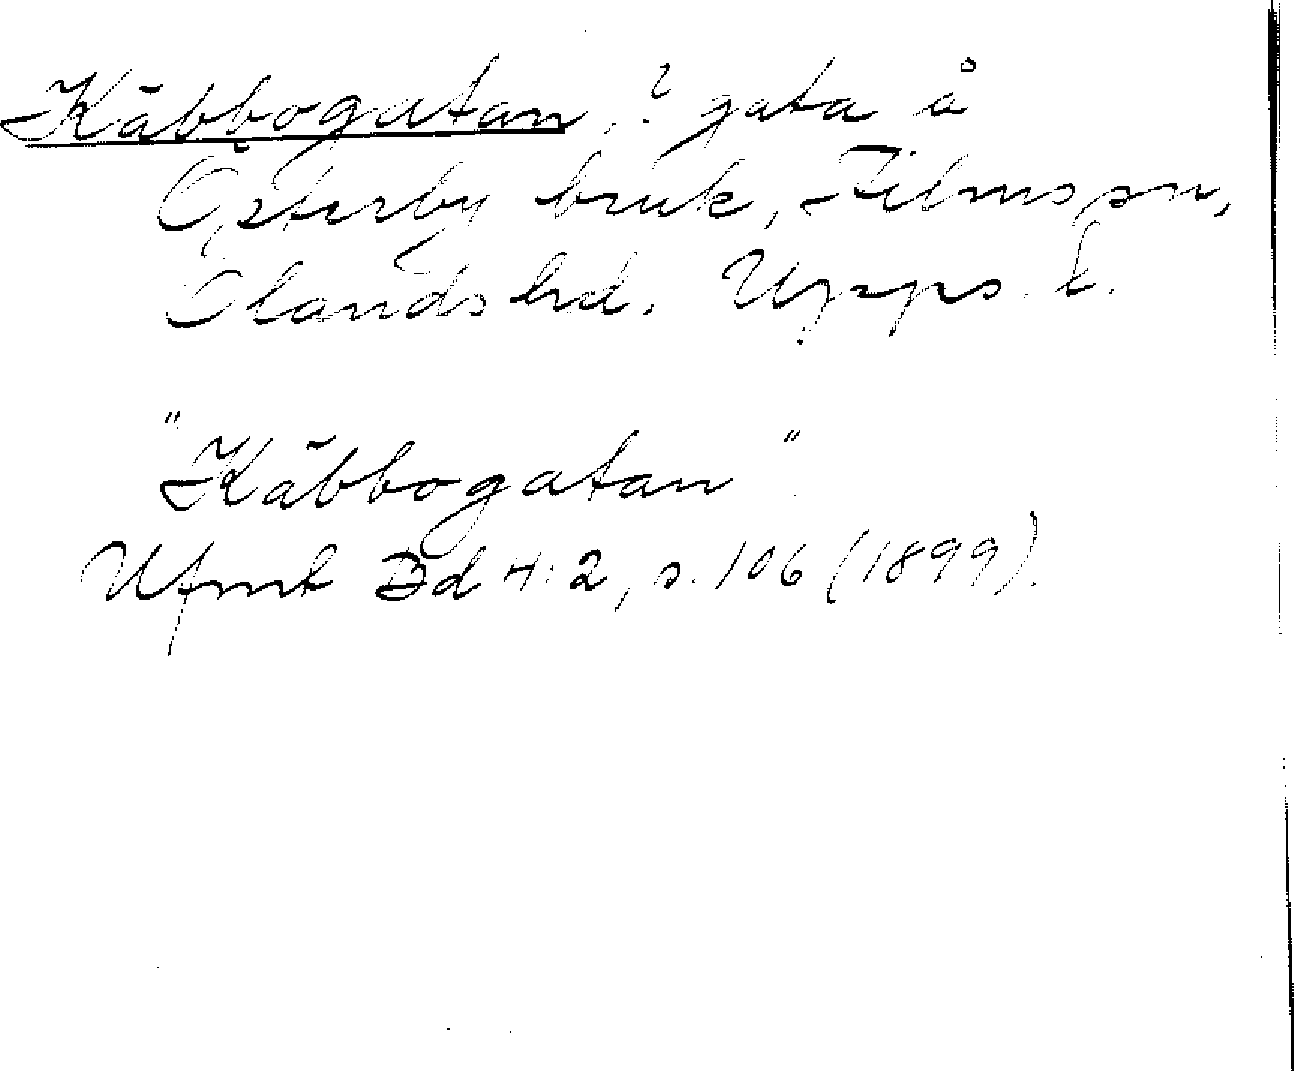 Käbbogatan, ? gata å
Österby bruk, Films sn,
Olands hd. Upps. l.
"Käbbogatan"
Ufmt Bd 4:2, s. 106 (1899).